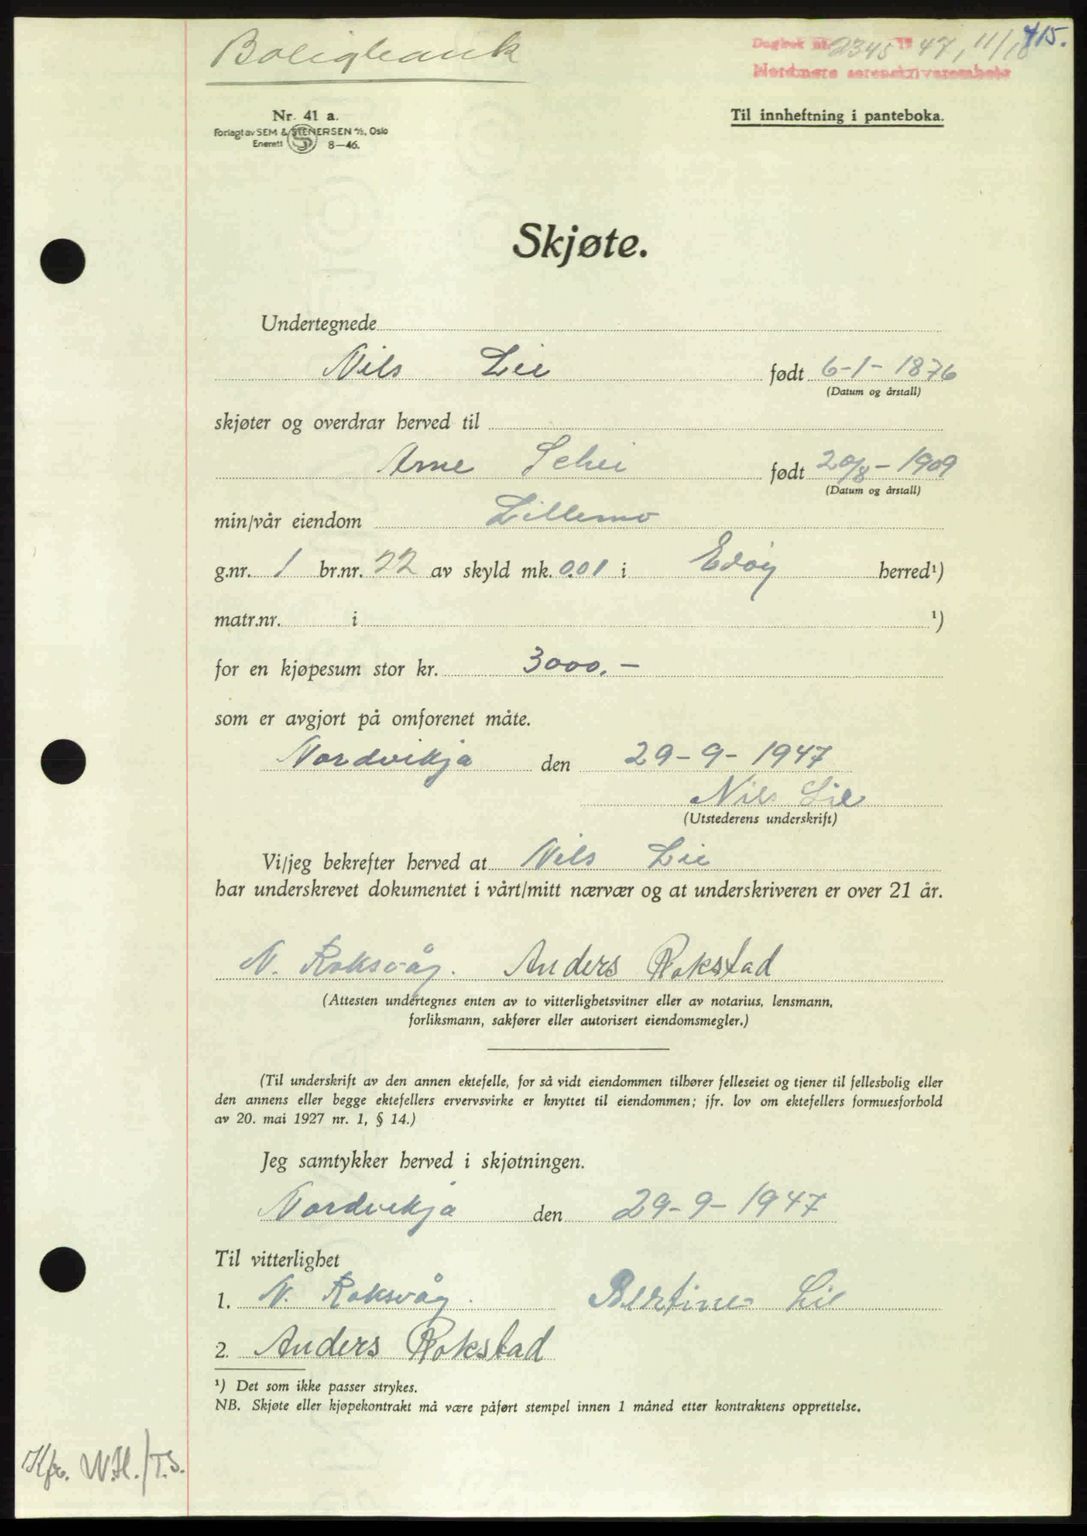 Boligbank
Dagbok nr. 2345 19 47, 11/10
415.
Nordmøre sorenskriverembete
Nr. 41 a.
Forlagt av SEM & STENERSEN A/S, Oslo
Enerett 8—46.
Til innheftning i panteboka.
Skjøte.
Undertegnede
Nils Lie født 6-1-1876
(Datum og årstall)
skjøter og overdrar herved til
Arne Schei født 20/8-1909
(Datum og årstall)
min/vår eiendom Lillemo
g.nr. 1 br.nr. 22 av skyld mk. 0.01 i Edøy herred¹)
matr.nr. i ¹)
for en kjøpesum stor kr. 3000.-
som er avgjort på omforenet måte.
Nordvikja den 29-9-1947
Nils Lie
(Utstederens underskrift)
Vi/jeg bekrefter herved at Nils Lie
har underskrevet dokumentet i vårt/mitt nærvær og at underskriveren er over 21 år.
N. Roksvåg. Anders Rokstad
(Attesten undertegnes enten av to vitterlighetsvitner eller av notarius, lensmann,
forliksmann, sakfører eller autorisert eiendomsmegler.)
(Til underskrift av den annen ektefelle, for så vidt eiendommen tilhører felleseiet og tjener til fellesbolig eller
den annens eller begge ektefellers ervervsvirke er knyttet til eiendommen; jfr. lov om ektefellers formuesforhold
av 20. mai 1927 nr. 1, § 14.)
Jeg samtykker herved i skjøtningen.
Nordvikja den 29-9-1947
Til vitterlighet
1. N. Roksvåg. Bertine Lie
2. Anders Rokstad
¹) Det som ikke passer strykes.
NB. Skjøte eller kjøpekontrakt må være påført stempel innen 1 måned etter kontraktens opprettelse.
Kfr. W.H./T.S.